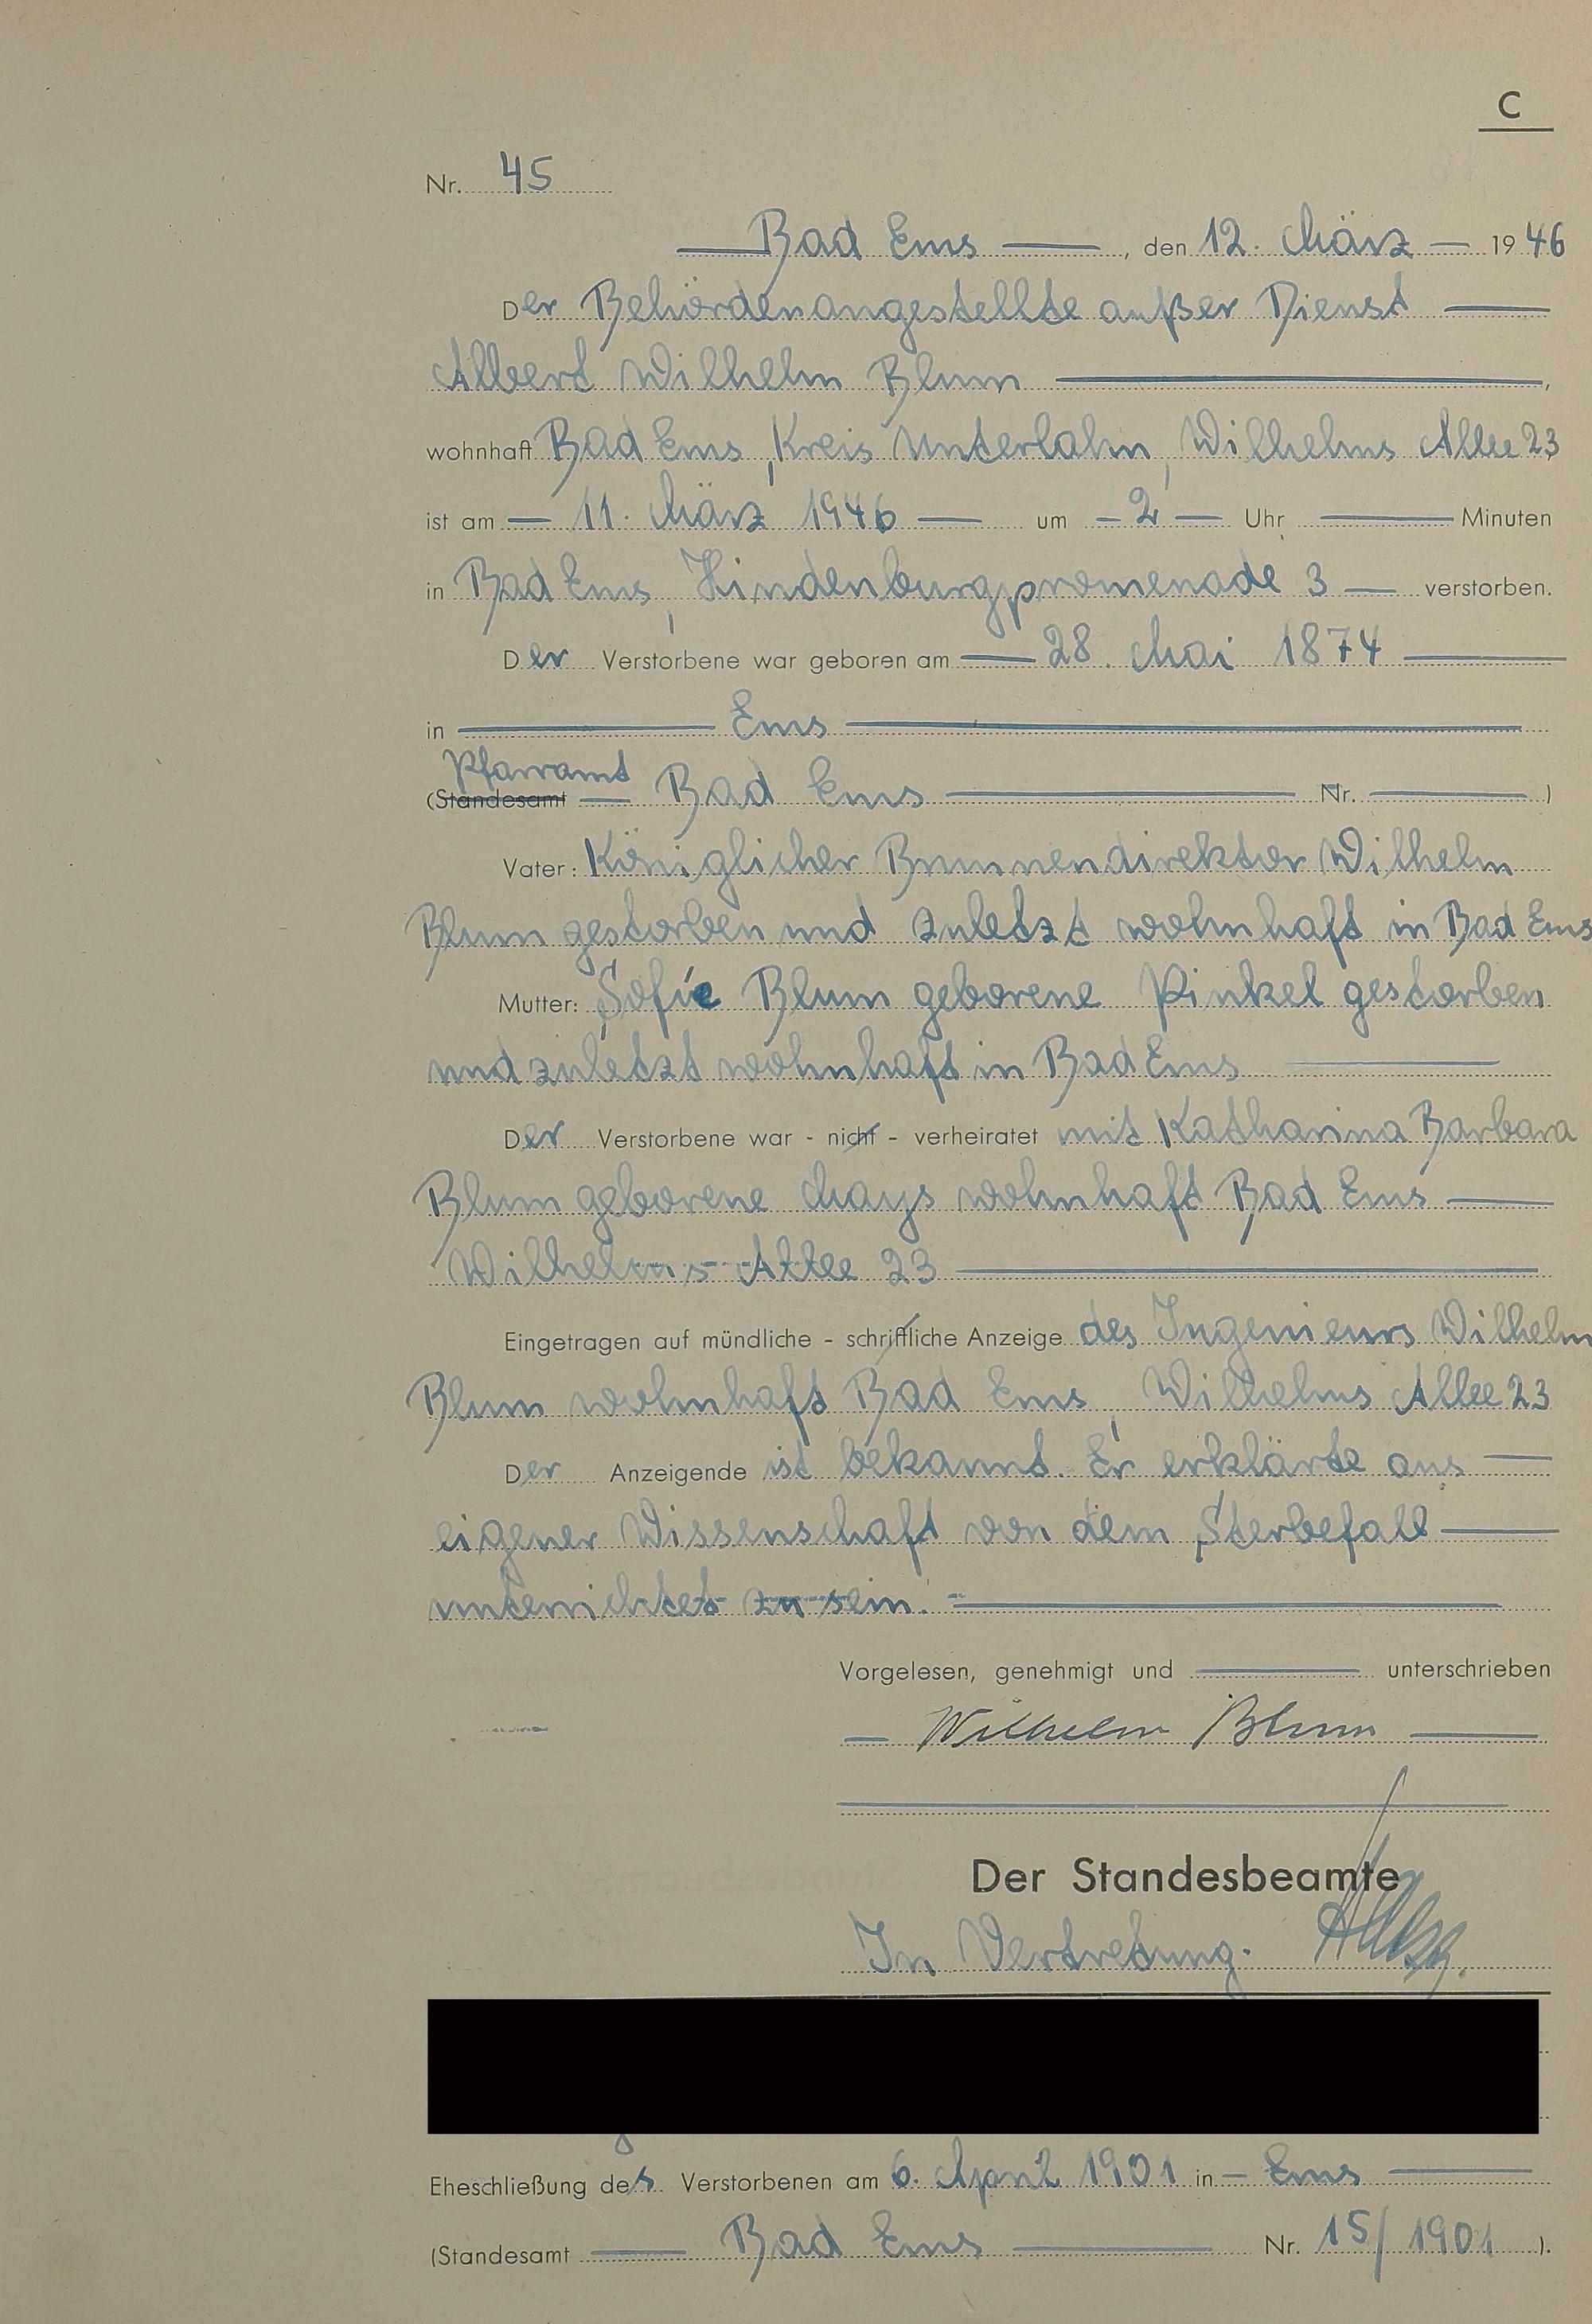 C
Nr. 45
Bad Ems, den 12. März 1946
Der Behördenangestellte außer Dienst
Albert Wilhelm Blum,
wohnhaft Bad Ems, Kreis Unterlahn, Wilhelms Allee 23
ist am 11. März 1946 um 2 Uhr Minuten
in Bad Ems, Hindenburgpromenade 3 verstorben.
Der Verstorbene war geboren am 28. Mai 1874
in Ems
Pfarramt
(Standesamt Bad Ems Nr. )
Vater: Königlicher Brunnendirektor Wilhelm
Blum gestorben und zuletzt wohnhaft in Bad Ems
Mutter: Sofie Blum geborene Pinkel gestorben
und zuletzt wohnhaft in Bad Ems
Der Verstorbene war - nicht - verheiratet mit Katharina Barbara
Blum geborene Mays wohnhaft Bad Ems
Wilhelms-Allee 23
Eingetragen auf mündliche - schriftliche Anzeige des Ingenieurs Wilhelm
Blum wohnhaft Bad Ems, Wilhelms Allee 23
Der Anzeigende ist bekannt. Er erklärte aus
eigener Wissenschaft von dem Sterbefall
unterrichtet zu sein.
Vorgelesen, genehmigt und unterschrieben
Wilhelm Blum
Der Standesbeamte
In Vertretung:
Eheschließung des Verstorbenen am 6. April 1901 in Ems
(Standesamt Bad Ems Nr. 15/1901 ).